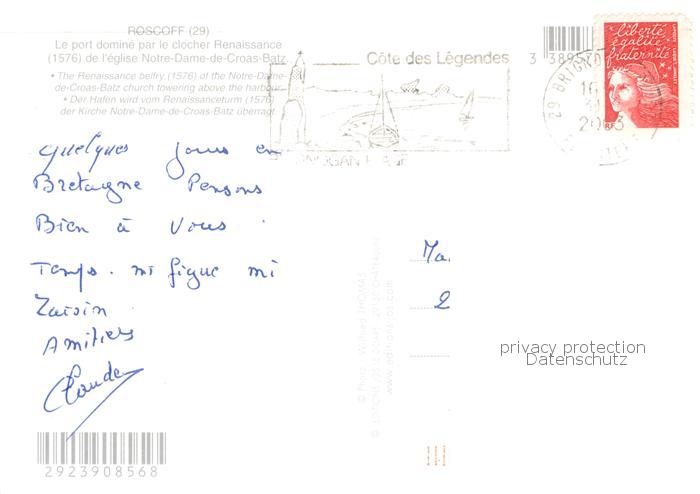 ROSCOFF (29)
Le port dominé par le clocher Renaissance
(1576) de l'église Notre-Dame-de-Croas-Batz.
• The Renaissance belfry (1576) of the Notre-Dame-
de-Croas-Batz church towering above the harbour.
• Der Hafen wird vom Renaissanceturm (1576)
der Kirche Notre-Dame-de-Croas-Batz überragt.
Côte des Légendes
3 3895
29 BRIGNO
16
31
2003
liberté
égalité
fraternité
RF
quelques jours en
Bretagne Pensons
Bien à vous.
Temps. mi figue mi
raisin
Amitiés
Claude
Ma.
2
© Photo : Wilfried THOMAS
www.editionsjos.com
privacy protection
Datenschutz
2923908568